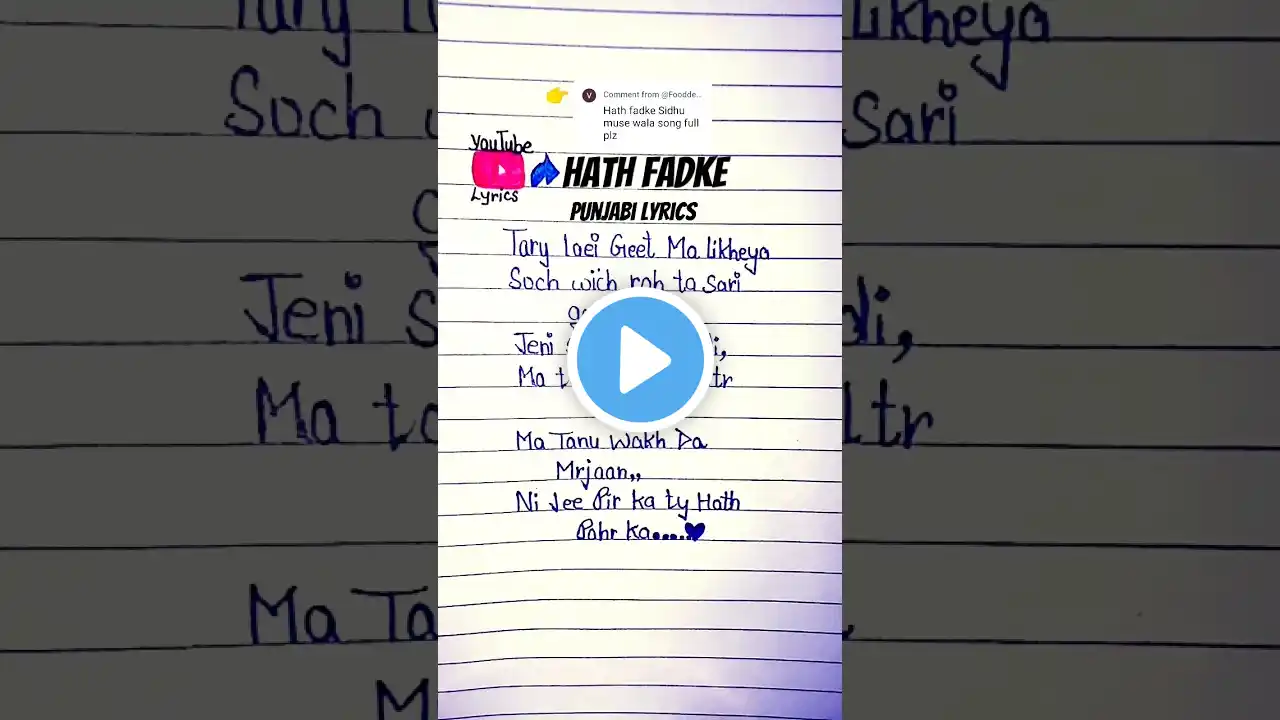 Comment from @Foodde...
Hath fadke Sidhu
muse wala song full
plz
YouTube
HATH FADKE
Lyrics
PUNJABI LYRICS
Tary laei Geet Ma likheya
Soch wich rah ta sari
Jeni
Ma
Ma Tanu Wakh Da
Mrjaan,,
Ni Jee Pir ka ty Hath
Pahr ka.....
likheya
Soch
Sari
Jeni
di,
Ma ta
ltr
Ma Ta